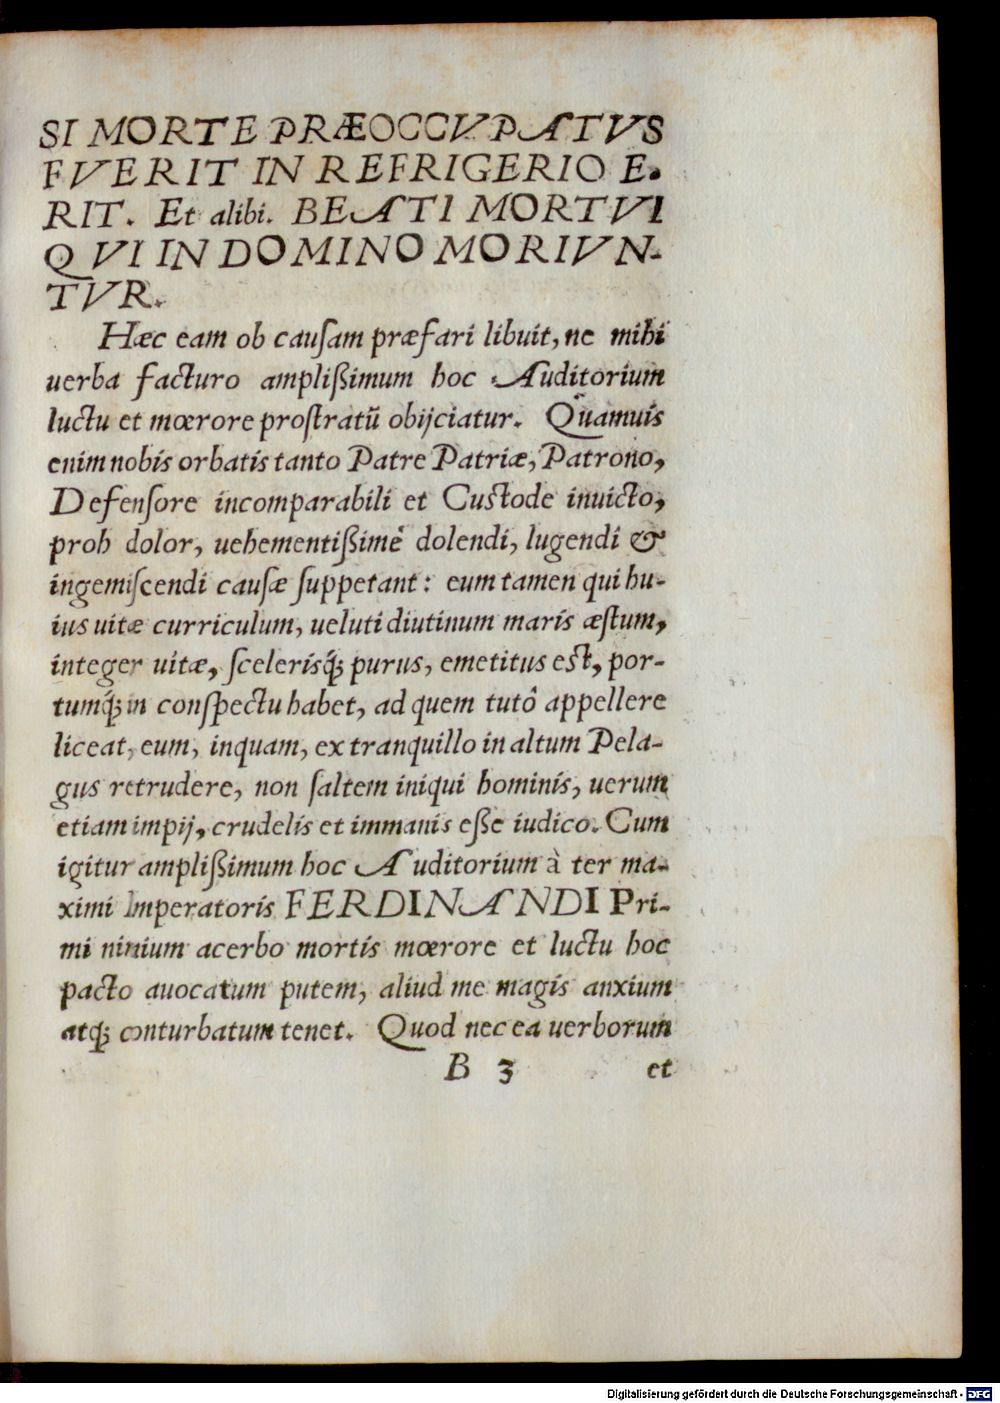 SI MORTE PRÆOCCVPATVS
FVERIT IN REFRIGERIO E-
RIT. Et alibi. BEATI MORTVI
QVI IN DOMINO MORIVN-
TVR.
Hæc eam ob cauſam præfari libuit, ne mihi
uerba facturo ampliſsimum hoc Auditorium
luctu et mœrore proſtratũ obijciatur. Quamuis
enim nobis orbatis tanto Patre Patriæ, Patrono,
Defenſore incomparabili et Cuſtode inuicto,
proh dolor, uehementiſsimè dolendi, lugendi &
ingemiſcendi cauſæ ſuppetant: eum tamen qui hu-
ius uitæ curriculum, ueluti diutinum maris æſtum,
integer uitæ, ſceleriſq́; purus, emetitus eſt, por-
tumq́; in conſpectu habet, ad quem tutò appellere
liceat, eum, inquam, ex tranquillo in altum Pela-
gus retrudere, non ſaltem iniqui hominis, uerum
etiam impij, crudelis et immanis eſſe iudico. Cum
igitur ampliſsimum hoc Auditorium à ter ma-
ximi Imperatoris FERDINANDI Pri-
mi nimium acerbo mortis mœrore et luctu hoc
pacto auocatum putem, aliud me magis anxium
atq́; conturbatum tenet. Quod nec ea uerborum
B 3 et
Digitalisierung gefördert durch die Deutsche Forschungsgemeinschaft - DFG